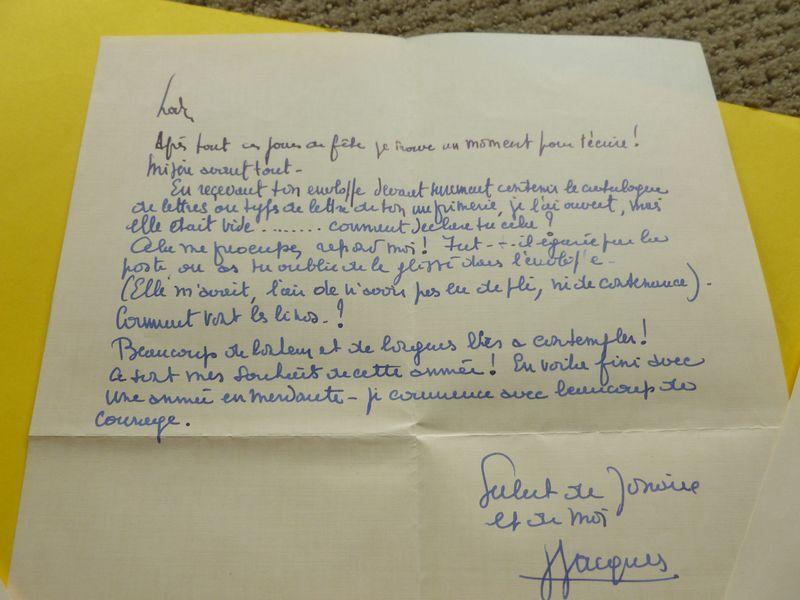 Après tout ces jours de fête je trouve un moment pour t'écrire!
Misère avant tout -
En reçevant ton enveloppe devant surement contenir le catalogue
de lettres ou types de lettre de ton imprimerie, je l'ai ouvert, mais
elle était vide ........ comment
cela?
Cela me préocupe, répond moi! Fut -- il égarée par la
poste, ou as tu oublié de le glissé dans l'enveloppe -
(Elle m'avait, l'air de n'avoir pas eu de pli, ni de contenance).
Comment vont les linos.?
Beaucoup de
et de longues
a contempler!
Ce sont mes souhaits de cette année! En voila fini avec
une année emmerdante - je commence avec beaucoup de
courage.
Salut de
et de moi
JJacques